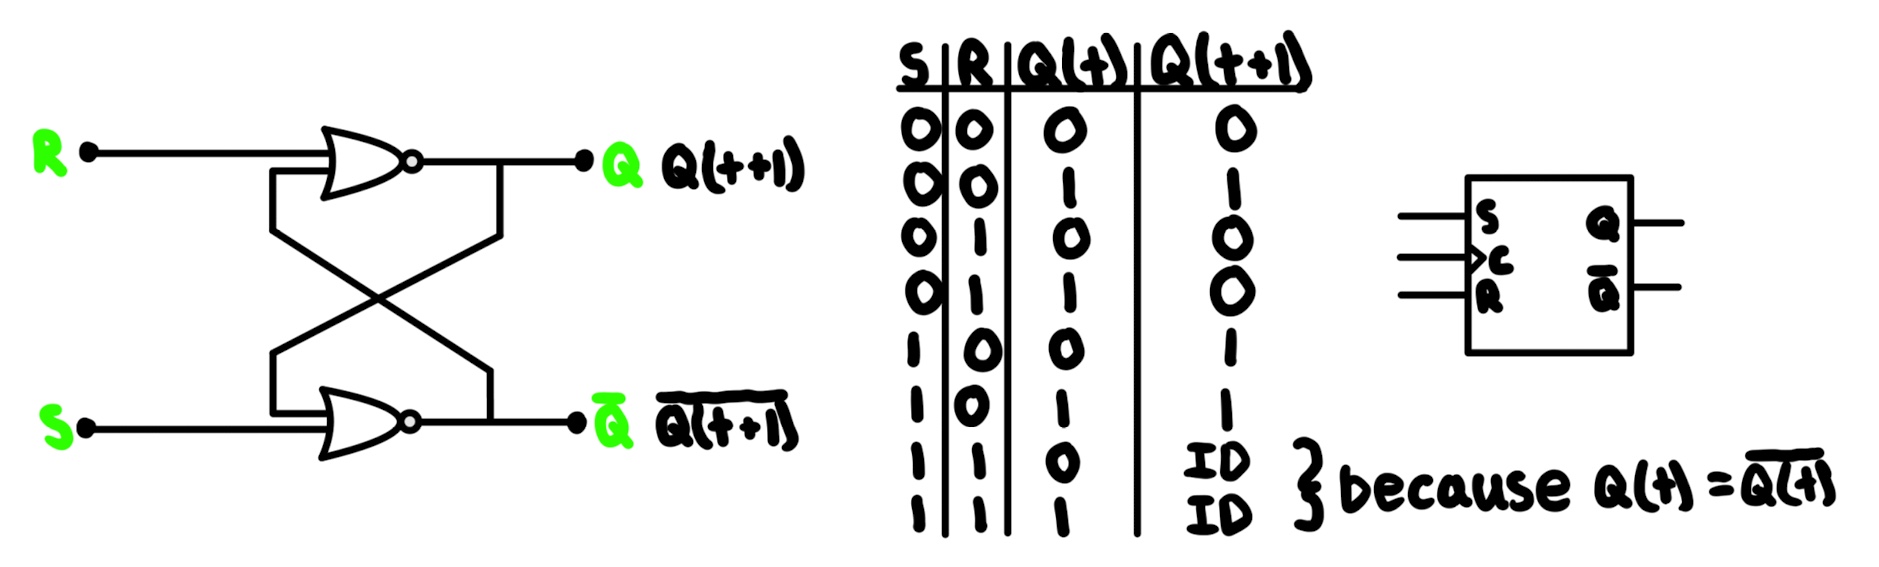 R
Q Q(t+1)
S
Q̅ Q̅(̅t̅+̅1̅)̅
S R Q(t) Q(t+1)
0 0 0 0
0 0 1 1
0 1 0 0
0 1 1 0
1 0 0 1
1 0 1 1
1 1 0 ID
1 1 1 ID
} because Q(t) = Q̅(̅t̅)̅
S Q
C
R Q̅